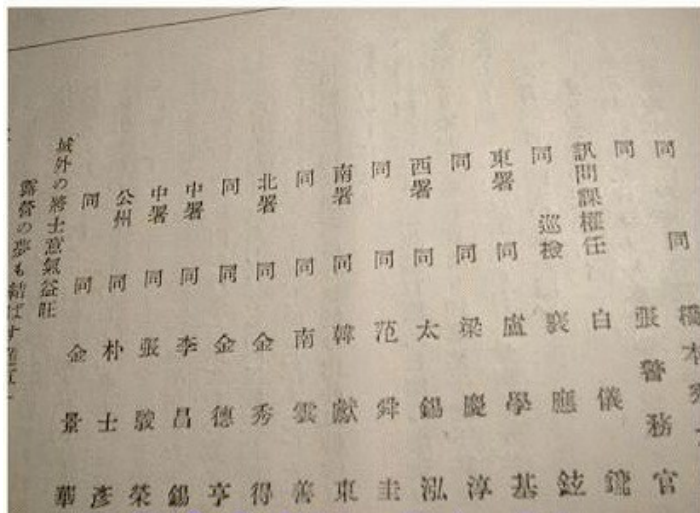 同 同 本
同 張警務官
訊問課權任 白儀
同 巡檢 裵應鉉
東署 同 盧學基
同 同 梁慶淳
西署 同 太錫泓
同 同 范舜圭
南署 同 韓獻東
同 同 南雲善
北署 同 金秀得
同 同 金德亨
中署 同 李昌錫
中署 同 張駿榮
公州 同 朴士彥
同 同 金景華
城外の將士意氣益旺
露營の夢も結ばす